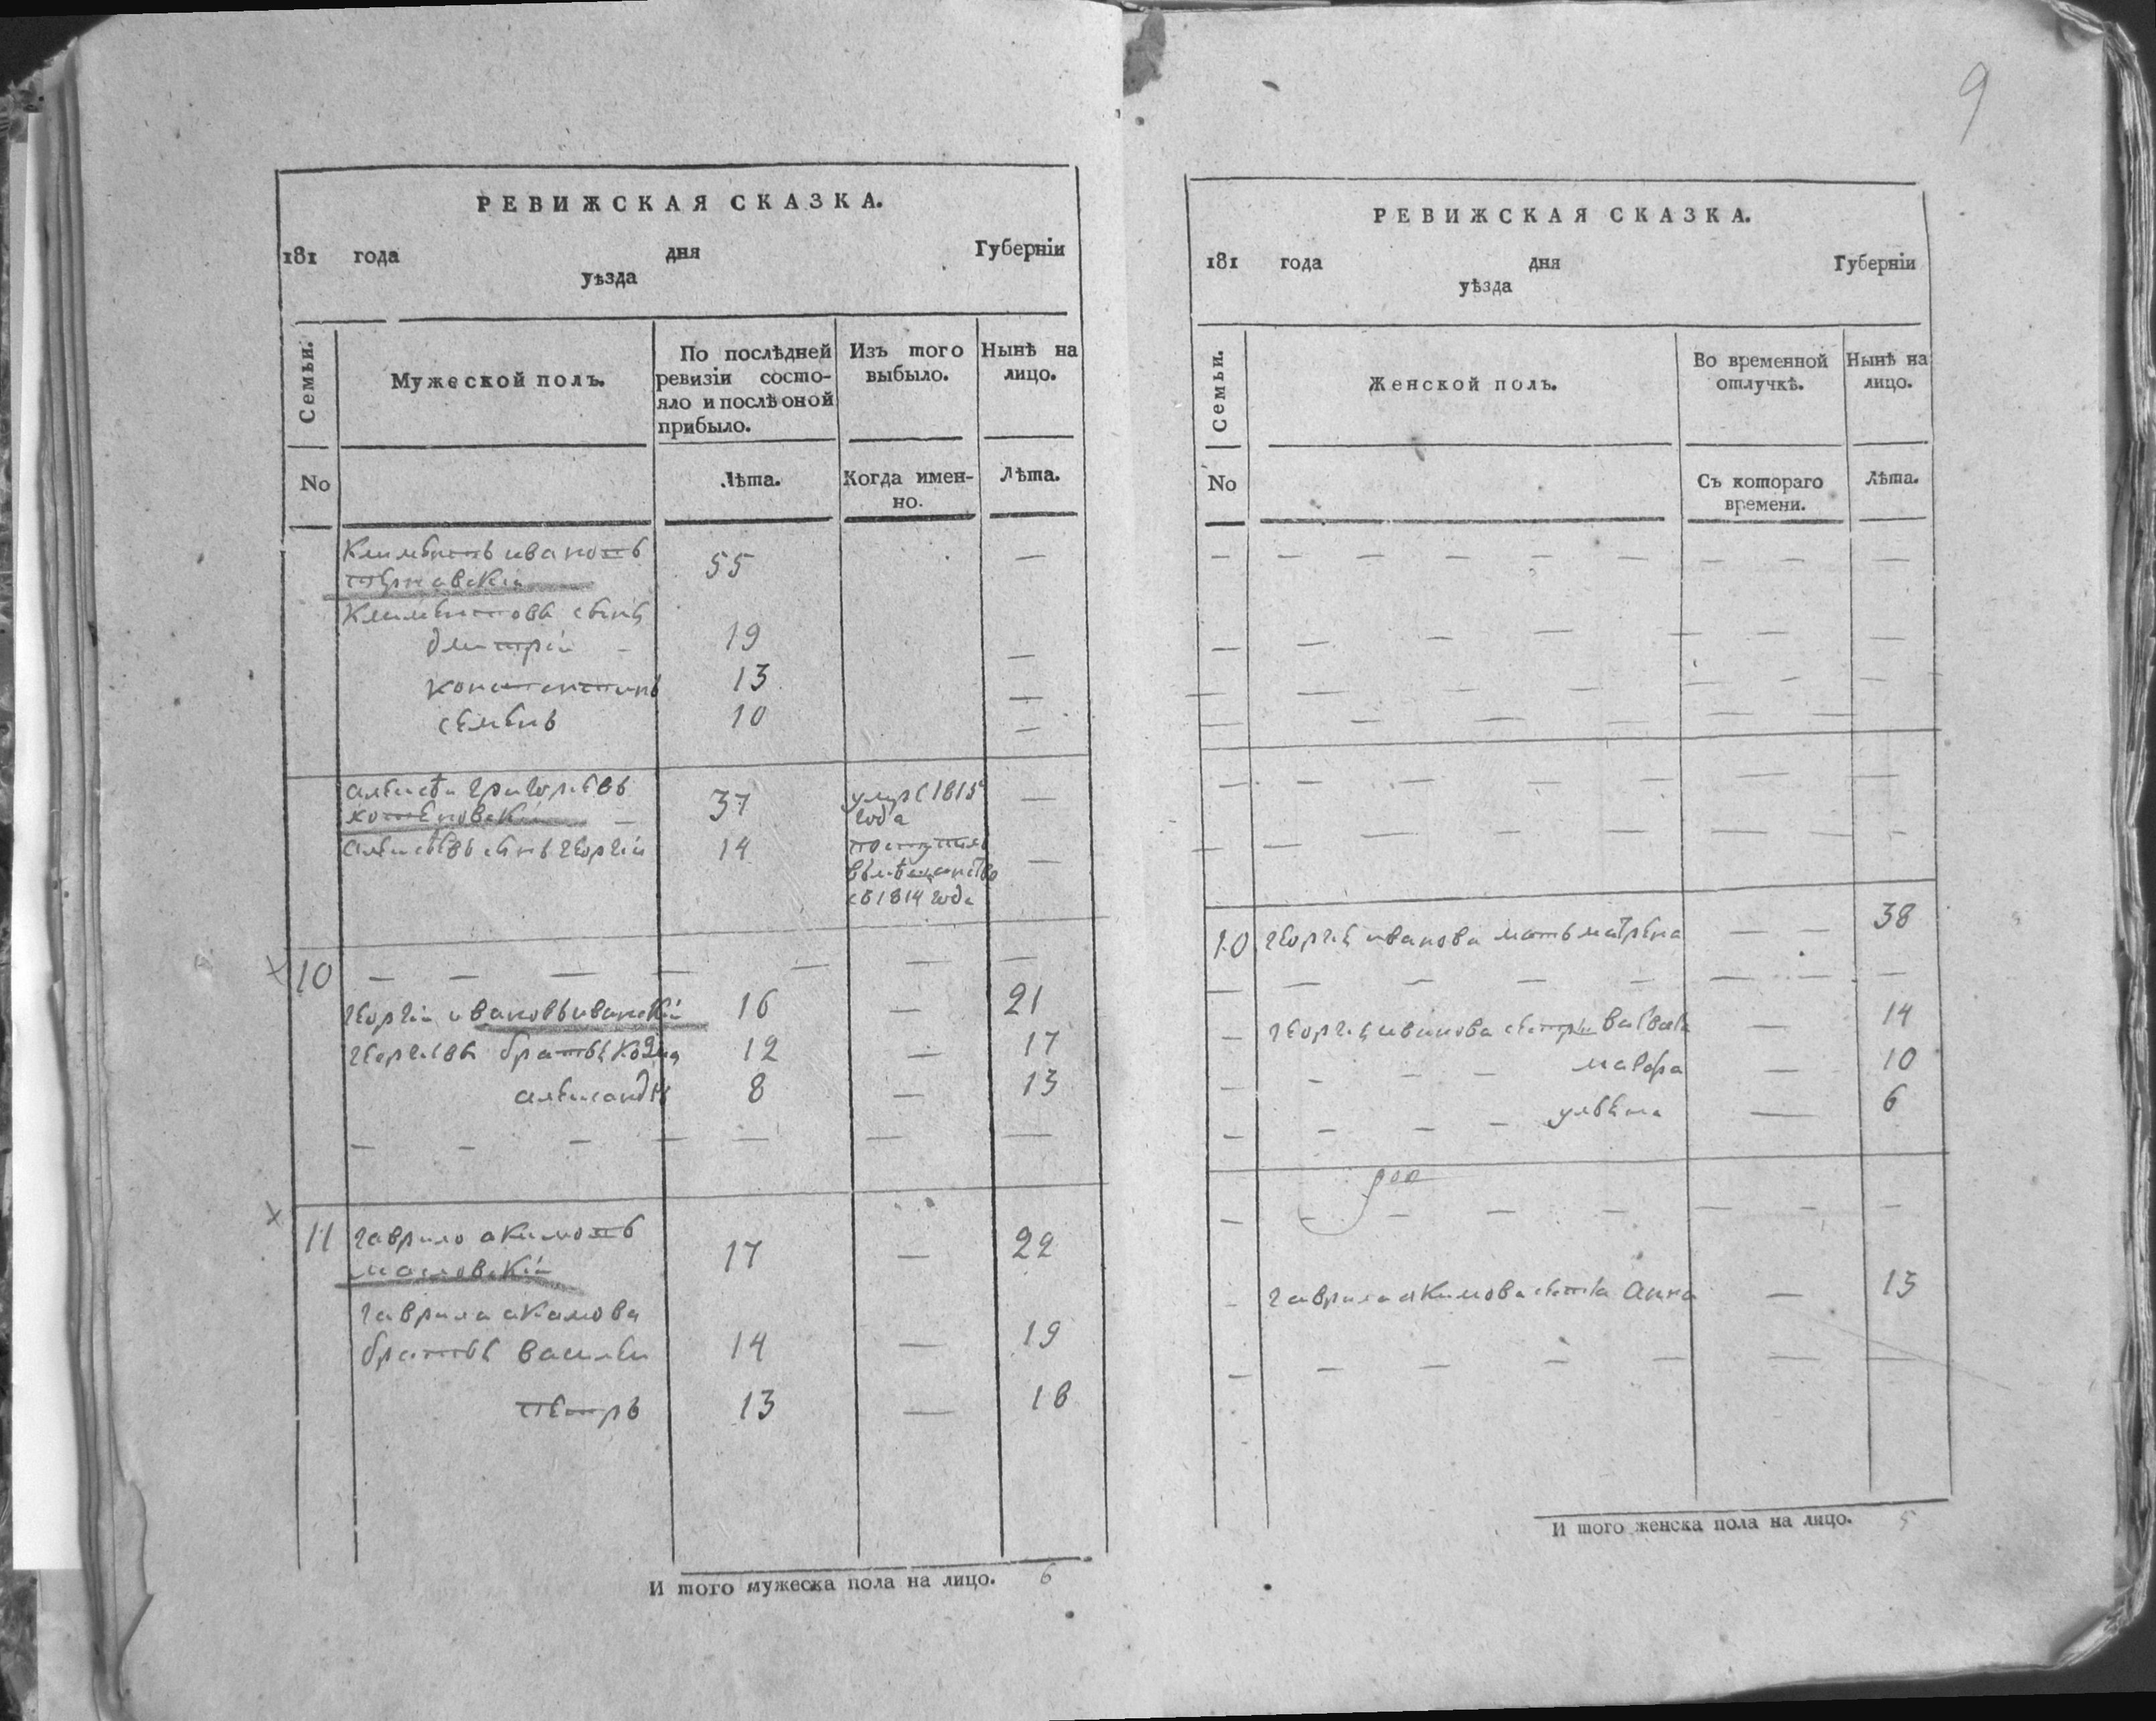 9
РЕВИЖСКАЯ СКАЗКА.
181 года дня Губерніи
уѣзда
Семьи.
Мужеской полъ.
По послѣдней ревизіи состо-
яло и послѣ оной
прибыло.
Изъ того
выбыло.
Нынѣ на
лицо.
No
Лѣта.
Когда имен-
но.
Лѣта.
Климентъ Ивановъ 55 —
Климентовы сыны
Дмитрій 19 —
Константинъ 13 —
Семенъ 10 —
Алексѣй Григорьевъ 37 умре 1815 —
года
Алексѣевъ сынъ Георгій 14 поступилъ —
въ мѣщанство
съ 1814 года
10 — — — — — — —
Георгій Ивановъ Иванскій 16 — 21
Георгіевы братья Козма 12 — 17
Александръ 8 — 13
— — — — — — —
11 Гаврило Акимовъ 17 — 22
Гаврила Акимова
братья Василей 14 — 19
Петръ 13 — 18
И того мужеска пола на лицо. 6
РЕВИЖСКАЯ СКАЗКА.
181 года дня Губерніи
уѣзда
Семьи.
Женской полъ.
Во временной
отлучкѣ.
Нынѣ на
лицо.
No
Съ котораго
времени.
Лѣта.
10 Георгія Иванова мать Матрена — — 38
Георгія Иванова сестры Варвара — 14
Мавра — 10
Ульяна — 6
Гаврила Акимова сестра Анна — 13
И того женска пола на лицо. 5